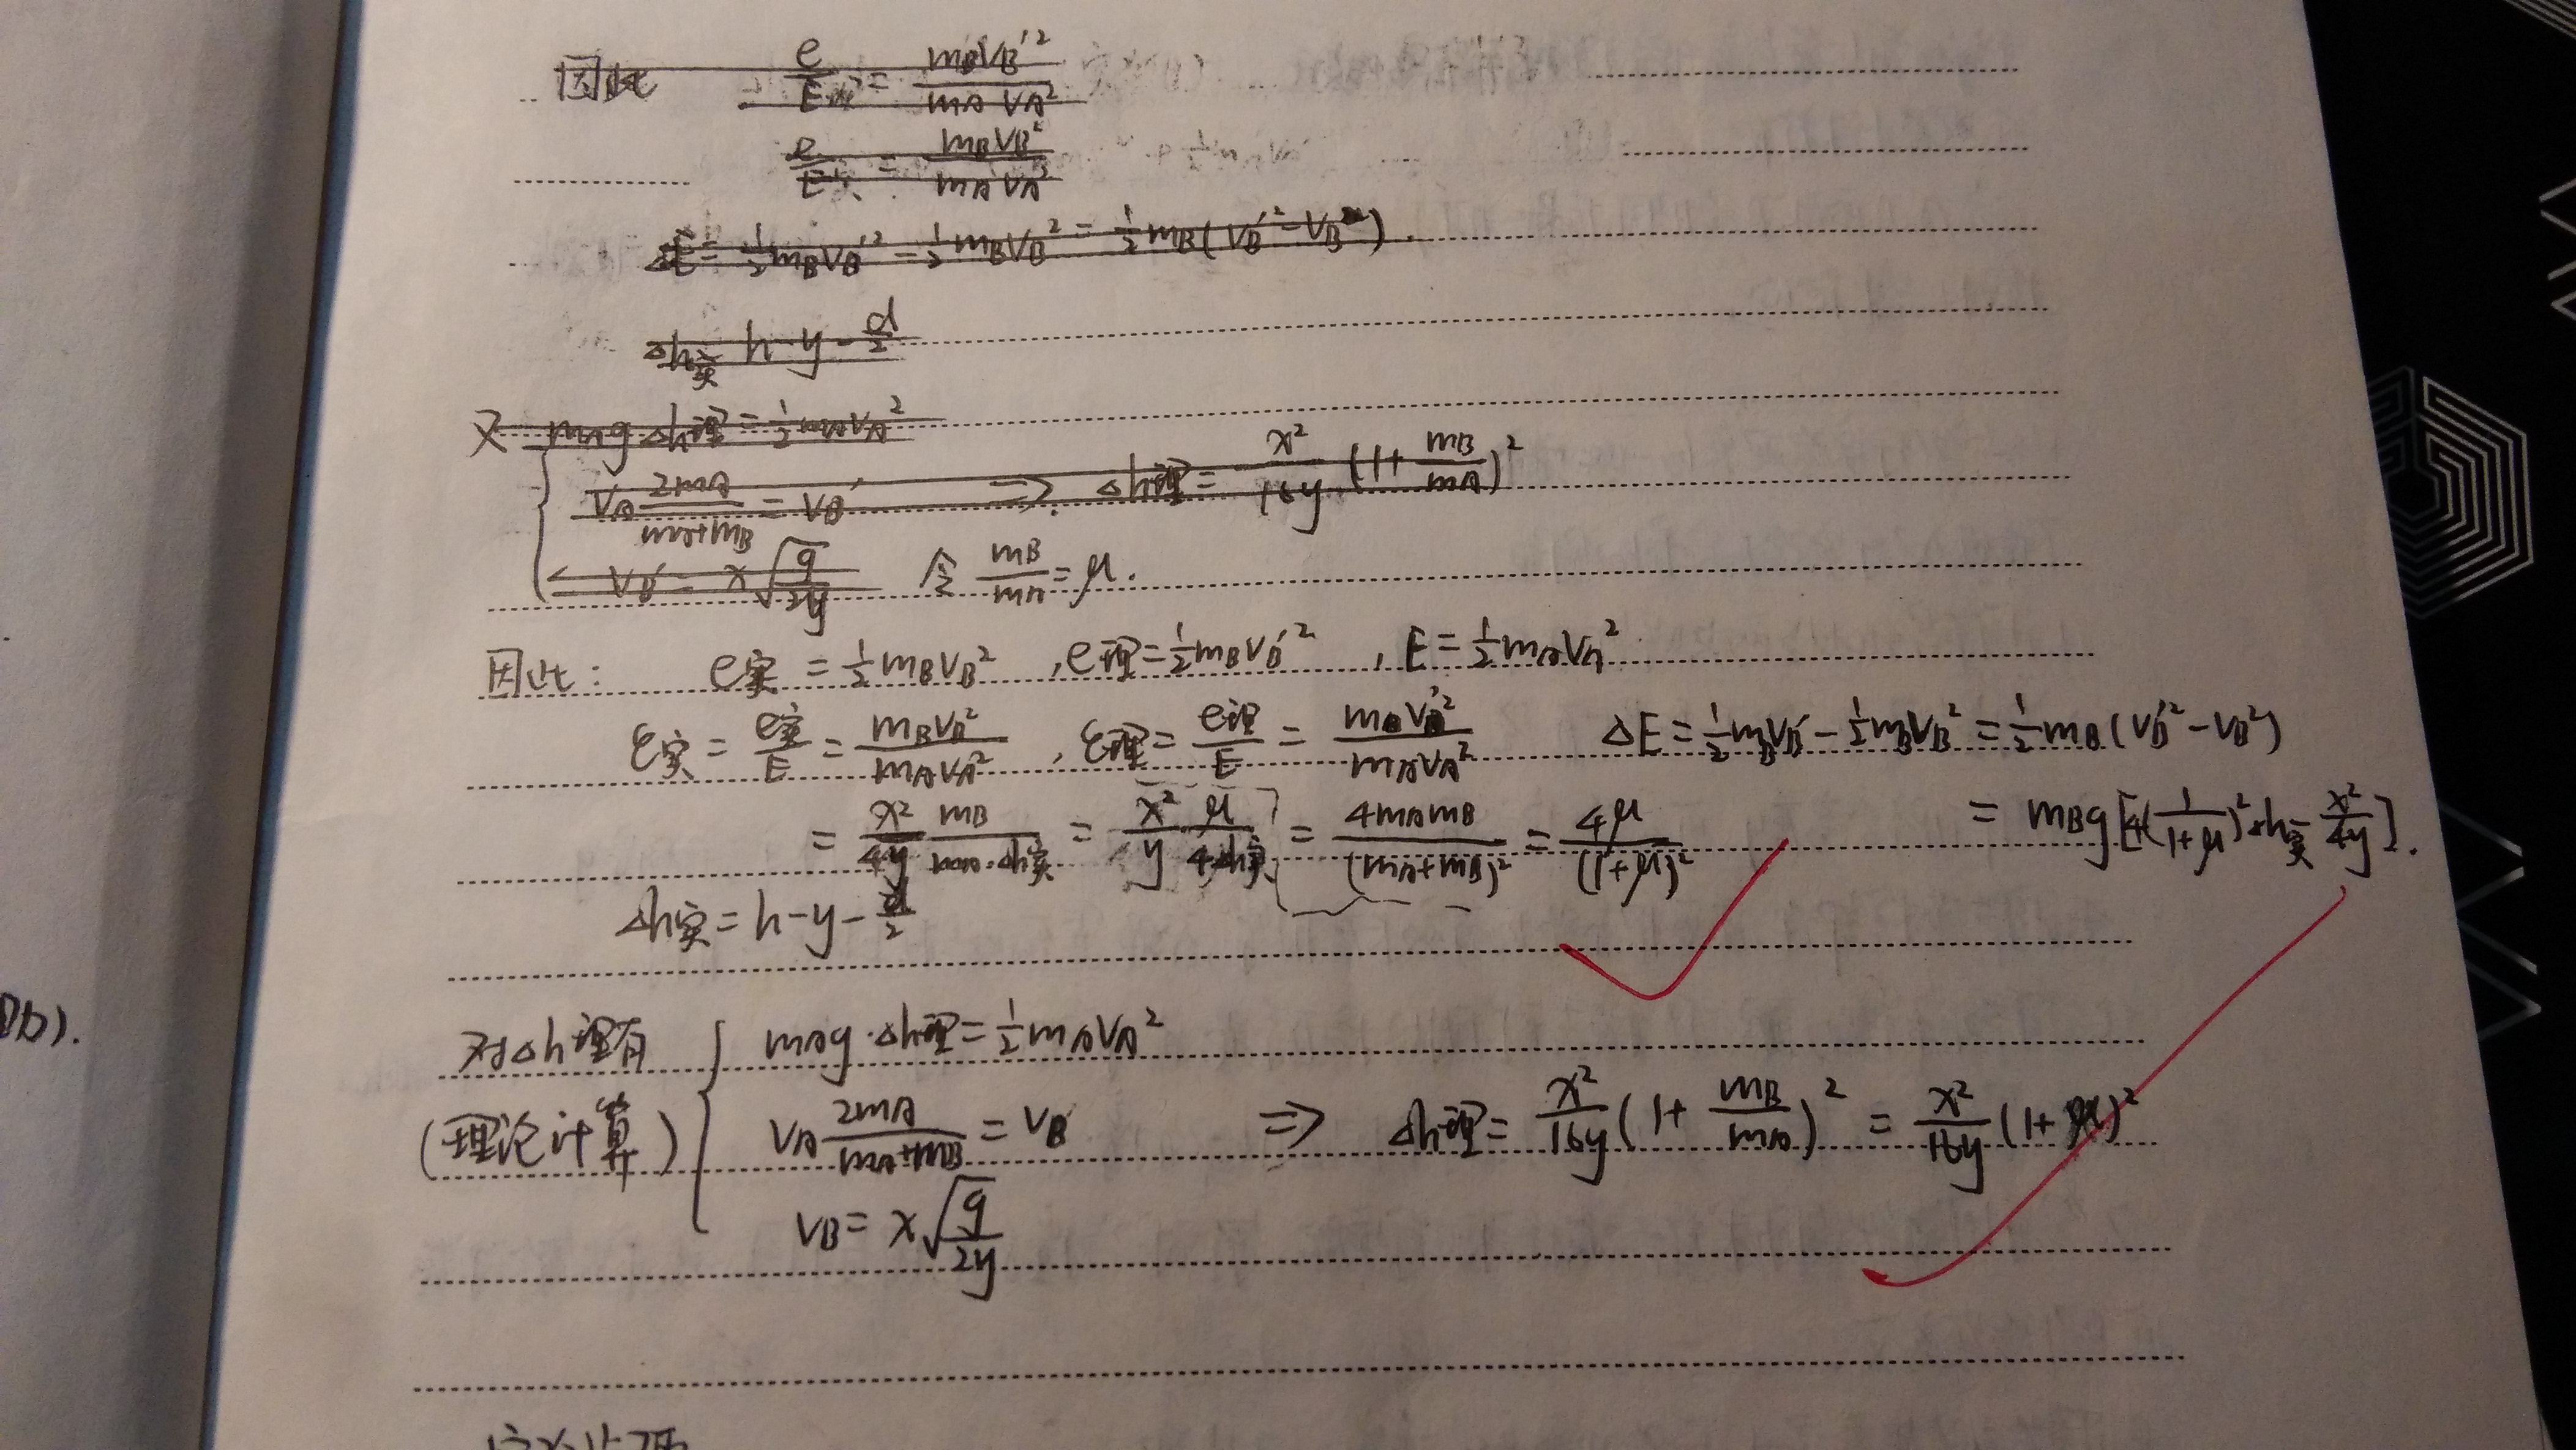 因此 e/E = mBVB'²/mAVA²
e/E = mBVB²/mAVA²
ΔE = ½mBVB'² - ½mBVB² = ½mB(VB'² - VB²).
Δh实 h-y-d/2
又 mAgΔh理 = ½mAVA²
VA 2mA/(mA+mB) = VB' ⇒ Δh理 = x²/16y (1 + mB/mA)²
VB' = x√(g/2y) 令 mB/mA = μ.
因此: e实 = ½mBVB², e理 = ½mBVB'², E = ½mAVA²
ε实 = e实/E = mBVB²/mAVA², ε理 = e理/E = mBVB'²/mAVA² ΔE = ½mBVB'² - ½mBVB² = ½mB(VB'² - VB²)
= x²/4y mB/(mA·Δh实) = x²/y μ/4Δh实 = 4mAmB/(mA+mB)² = 4μ/(1+μ)² = mBg[4(1/(1+μ))²Δh实 - x²/4y].
Δh实 = h-y-d/2
Db).
对Δh理有 mAg·Δh理 = ½mAVA²
(理论计算) VA 2mA/(mA+mB) = VB ⇒ Δh理 = x²/16y (1 + mB/mA)² = x²/16y (1+μ)²
VB = x√(g/2y)